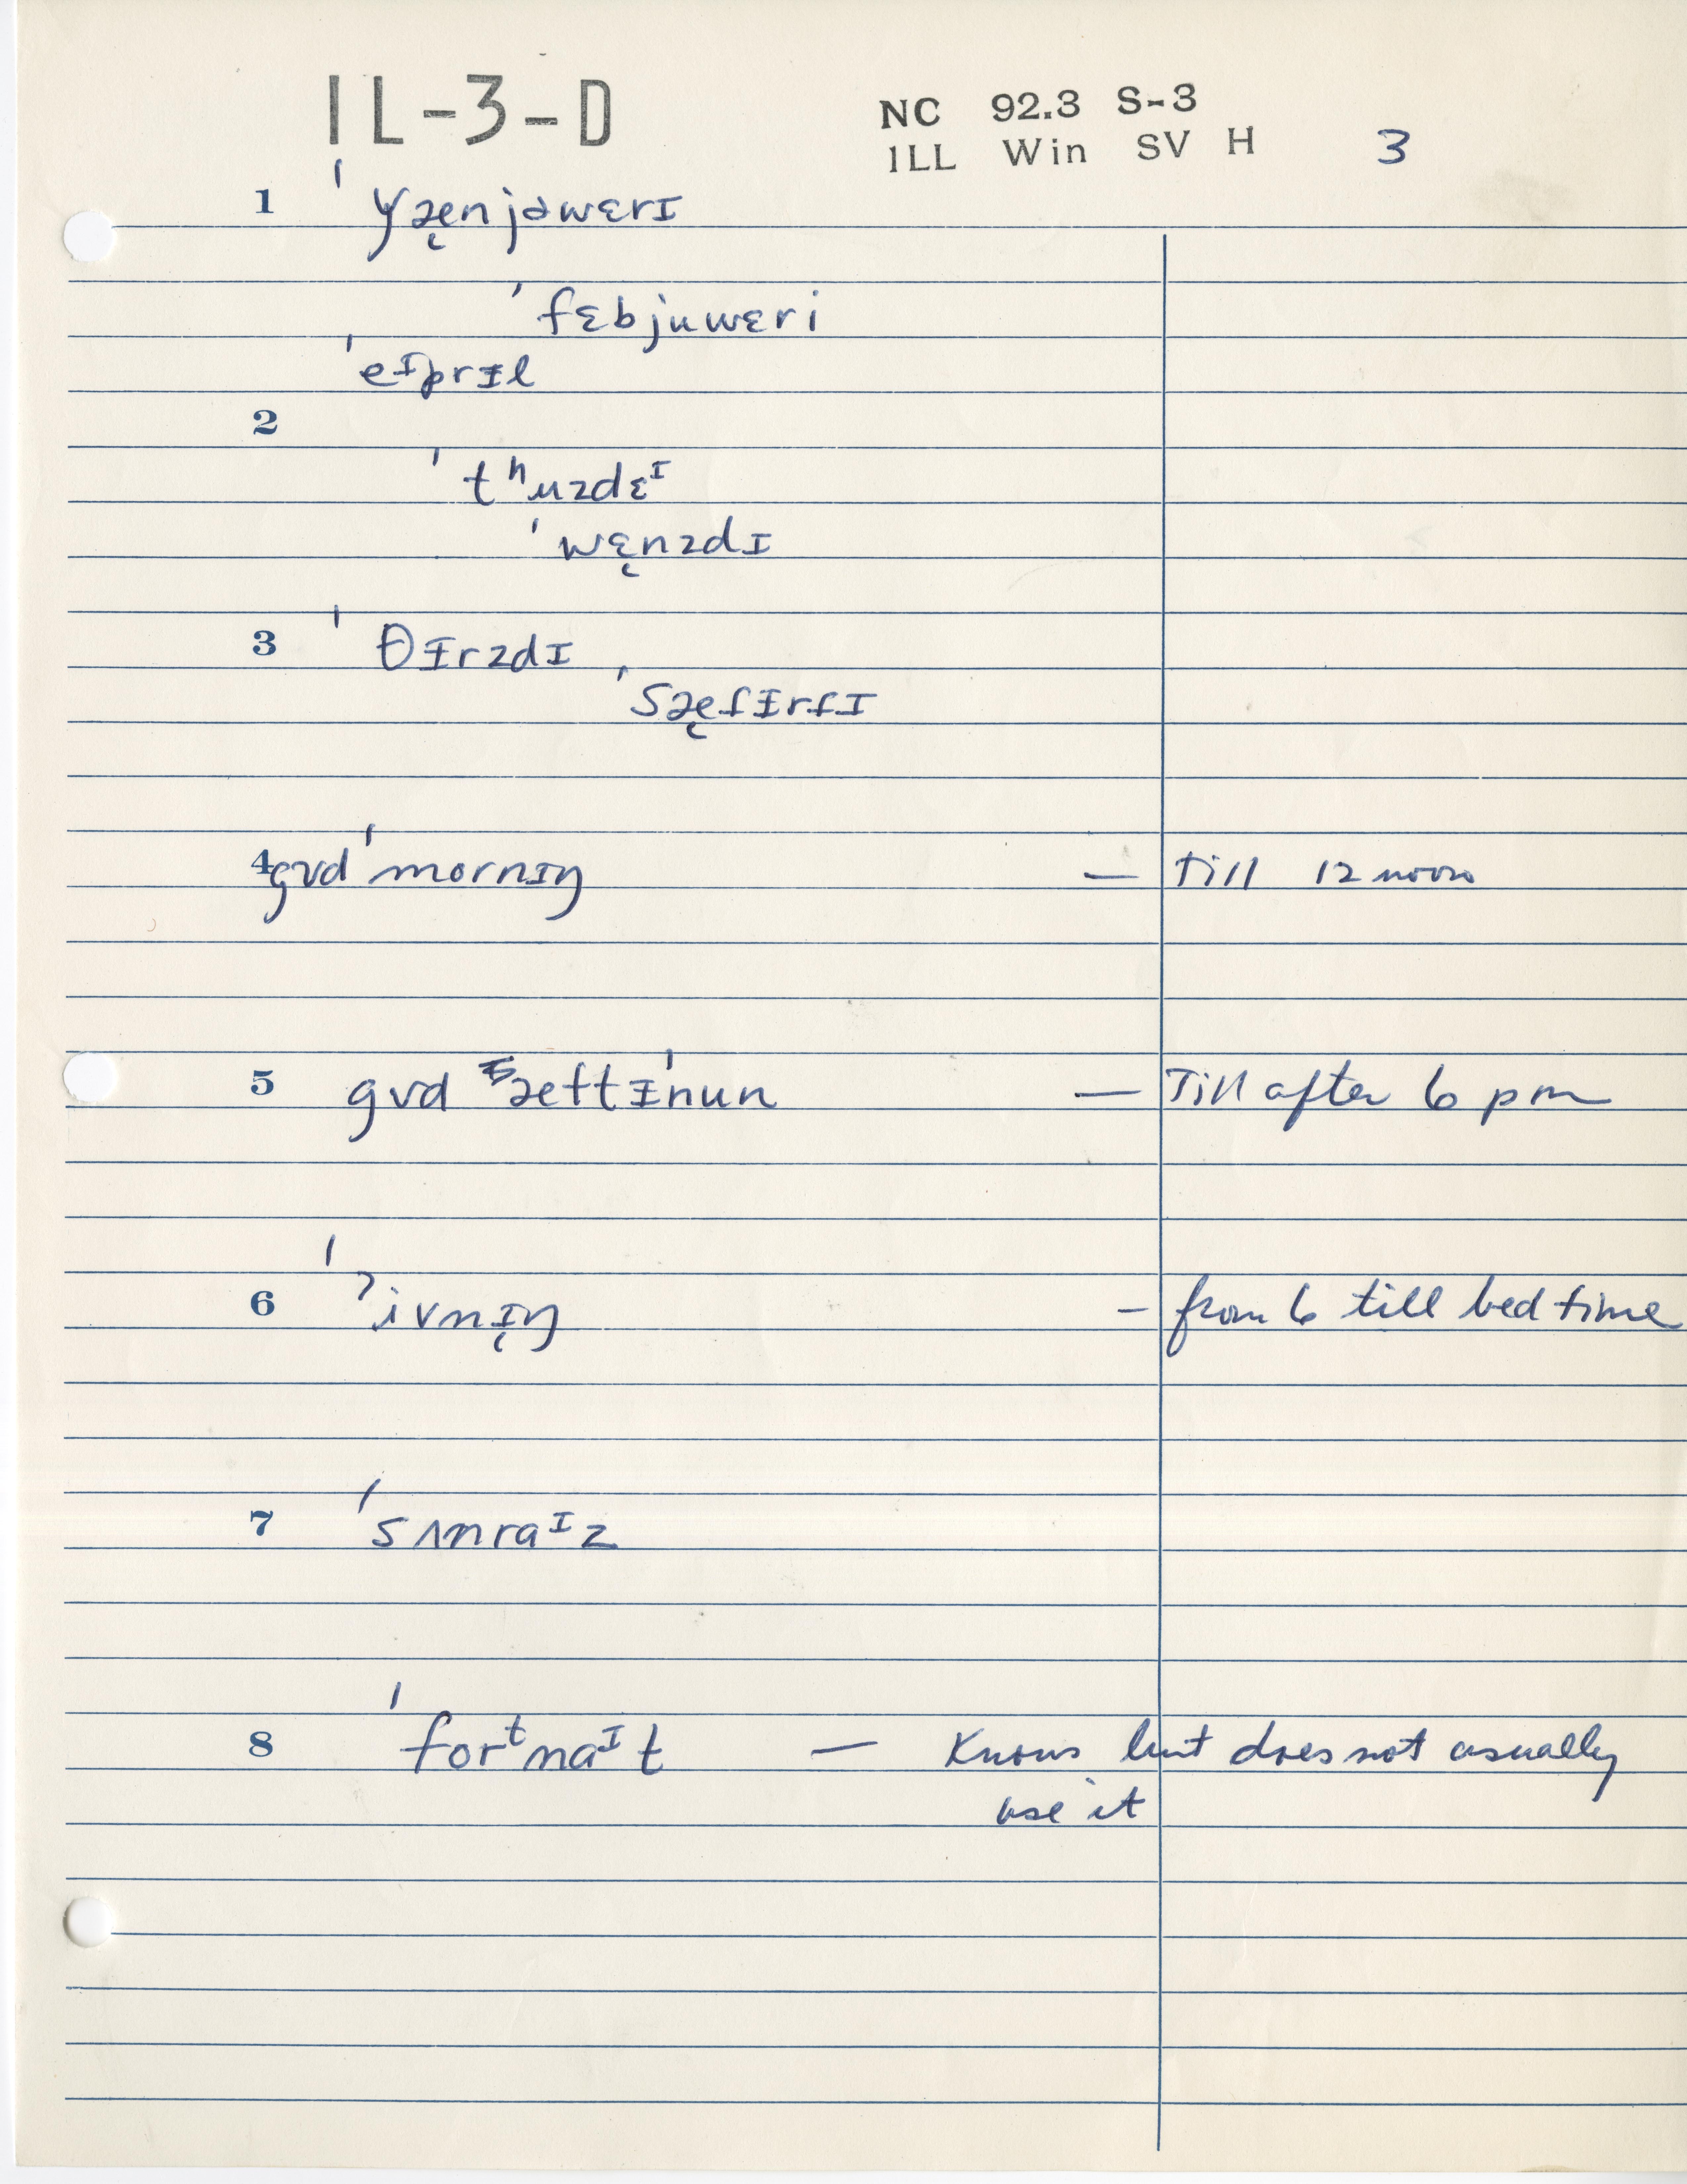 IL-3-D
NC 92.3 S-3
ILL Win SV H 3
1 ˈɣæ̨njəwɛrɪ
ˈfɛbjuwɛri
ˈeᶦprᵻl
2
ˈtʰuzdɛᶦ
ˈwɛ̨nzdɪ
3 ˈθᵻrzdɪ
ˈsæ̨tᵻrdɪ
4 gʊd ˈmornɪŋ — Till 12 noon
5 gʊd æftᵻˈnun — Till after 6 pm
6 ˈˀivnɪ̨ŋ – from 6 till bed time
7 ˈsʌnraᶦz
8 ˈforᵗnaᶦt — Knows but does not usually
use it